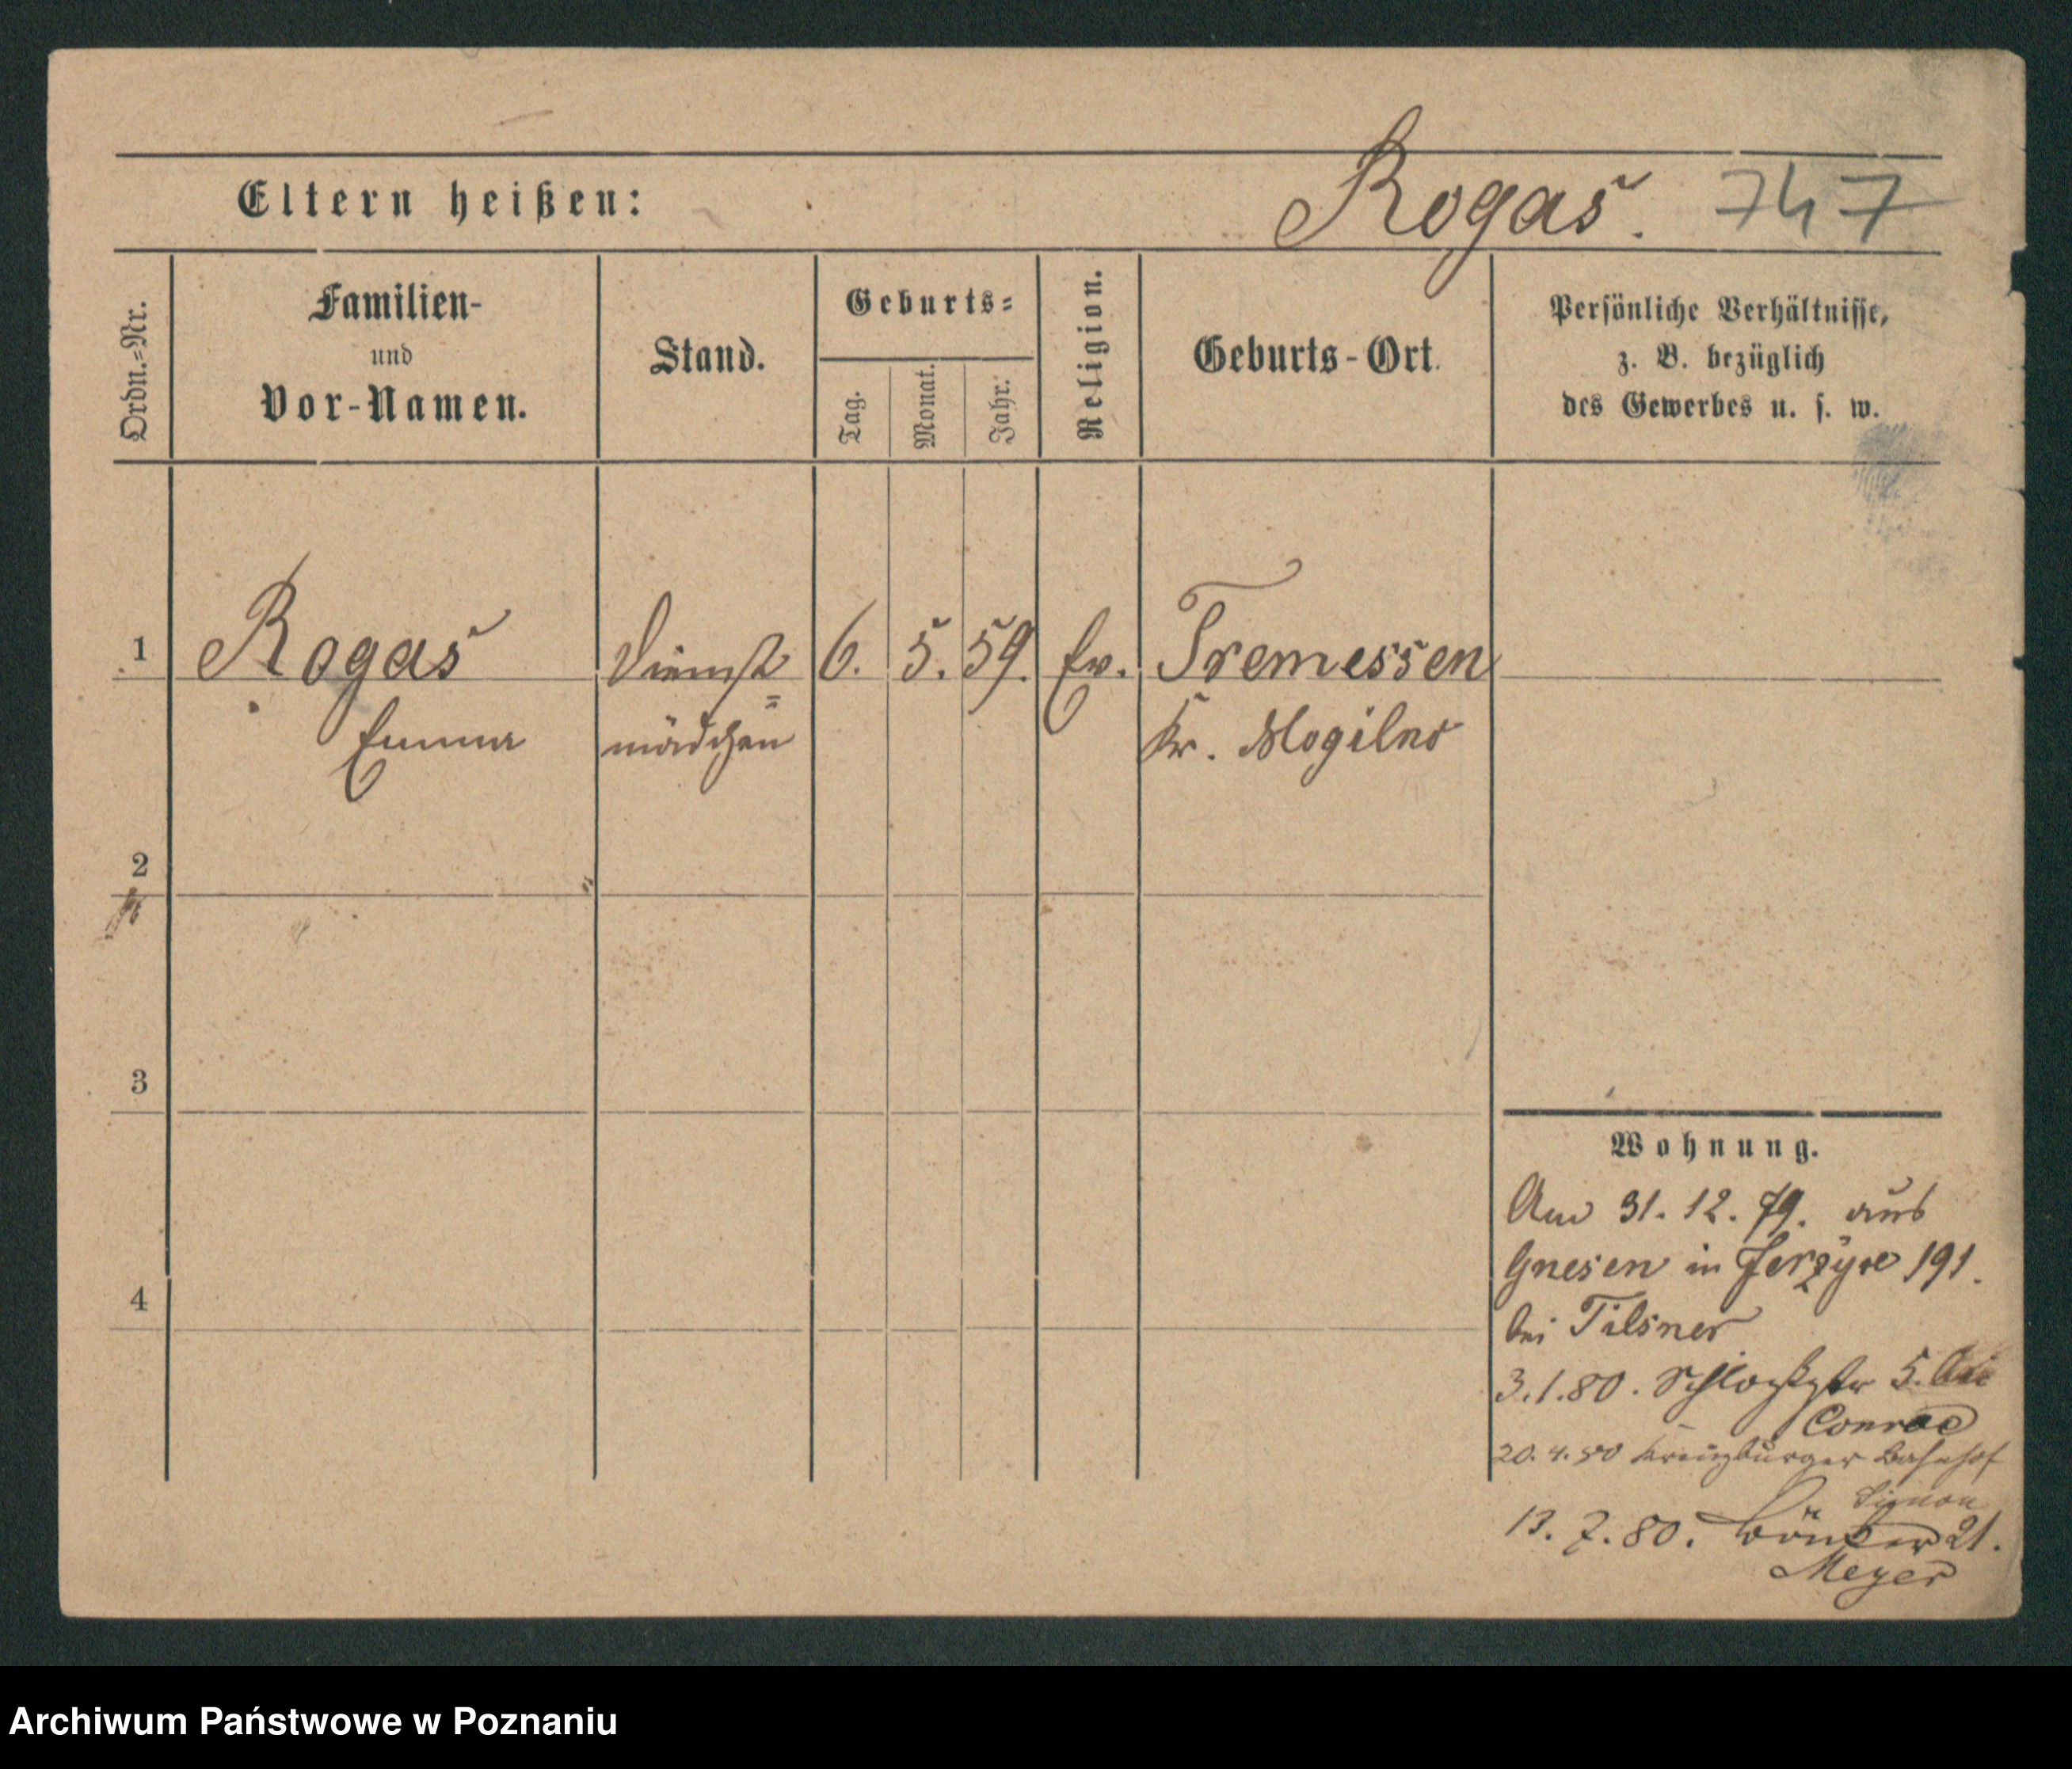 Eltern heißen: Rogas. 747
Ordn.-Nr.
Familien-
und
Vor-Namen.
Stand.
Geburts-
Tag. Monat. Jahr.
Religion.
Geburts-Ort.
Persönliche Verhältnisse,
z. B. bezüglich
des Gewerbes u. s. w.
1 Rogas Dienst 6. 5. 59. Ev. Tremessen
Emma mädchen Kr. Mogilno
2
3
4
Wohnung.
Am 31. 12. 79. aus
Gnesen in Jerzyce 191.
bei Tilsner
3. 1. 80. Schloßstr 5. bei
Conrad
20. 4. 80 Kreuzburger Bahnhof
Simon
13. 7. 80. 21.
Meyer
Archiwum Państwowe w Poznaniu